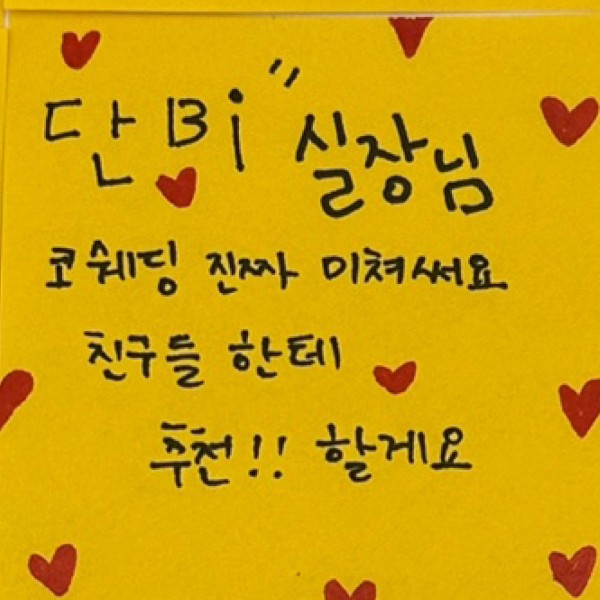 단Bi" 실장님
코쉐딩 진짜 미쳐써요
친구들 한테
추천!! 할게요